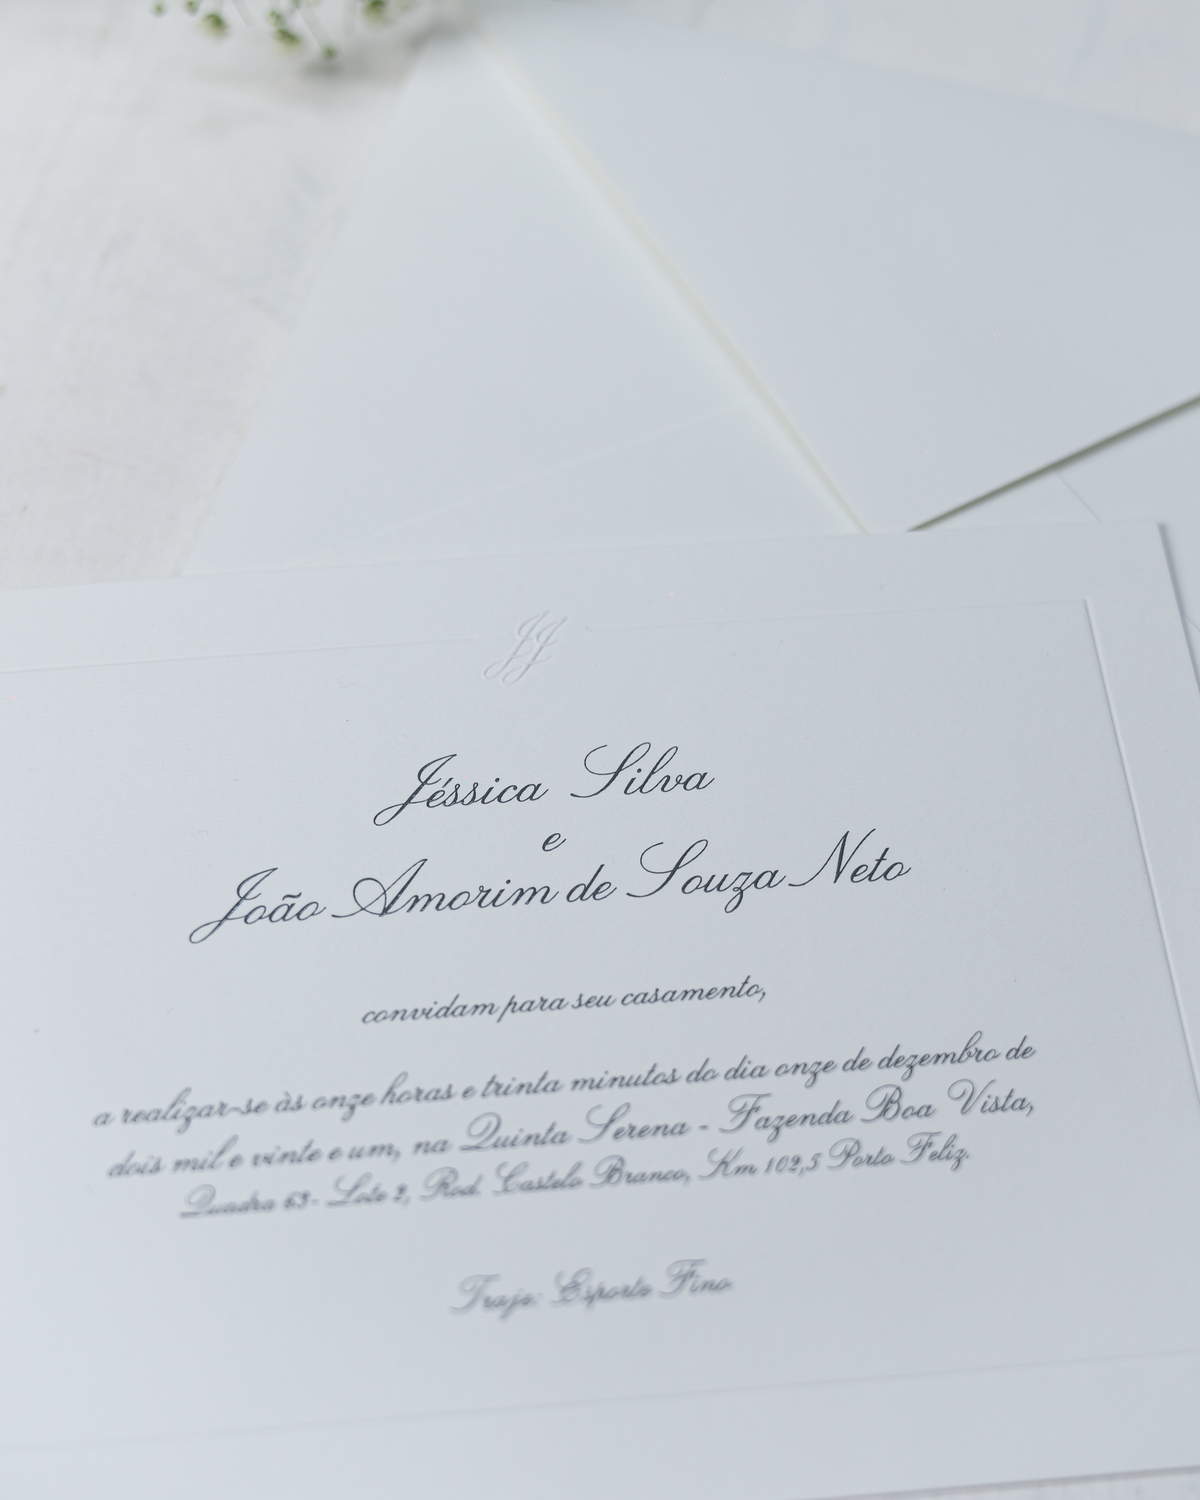 JJ
Jéssica Silva
e
João Amorim de Souza Neto
convidam para seu casamento,
a realizar-se às onze horas e trinta minutos do dia onze de dezembro de
dois mil e vinte e um, na Quinta Serena - Fazenda Boa Vista,
Quadra 63- Lote 2, Rod. Castelo Branco, Km 102,5 Porto Feliz.
Traje: Esporte Fino